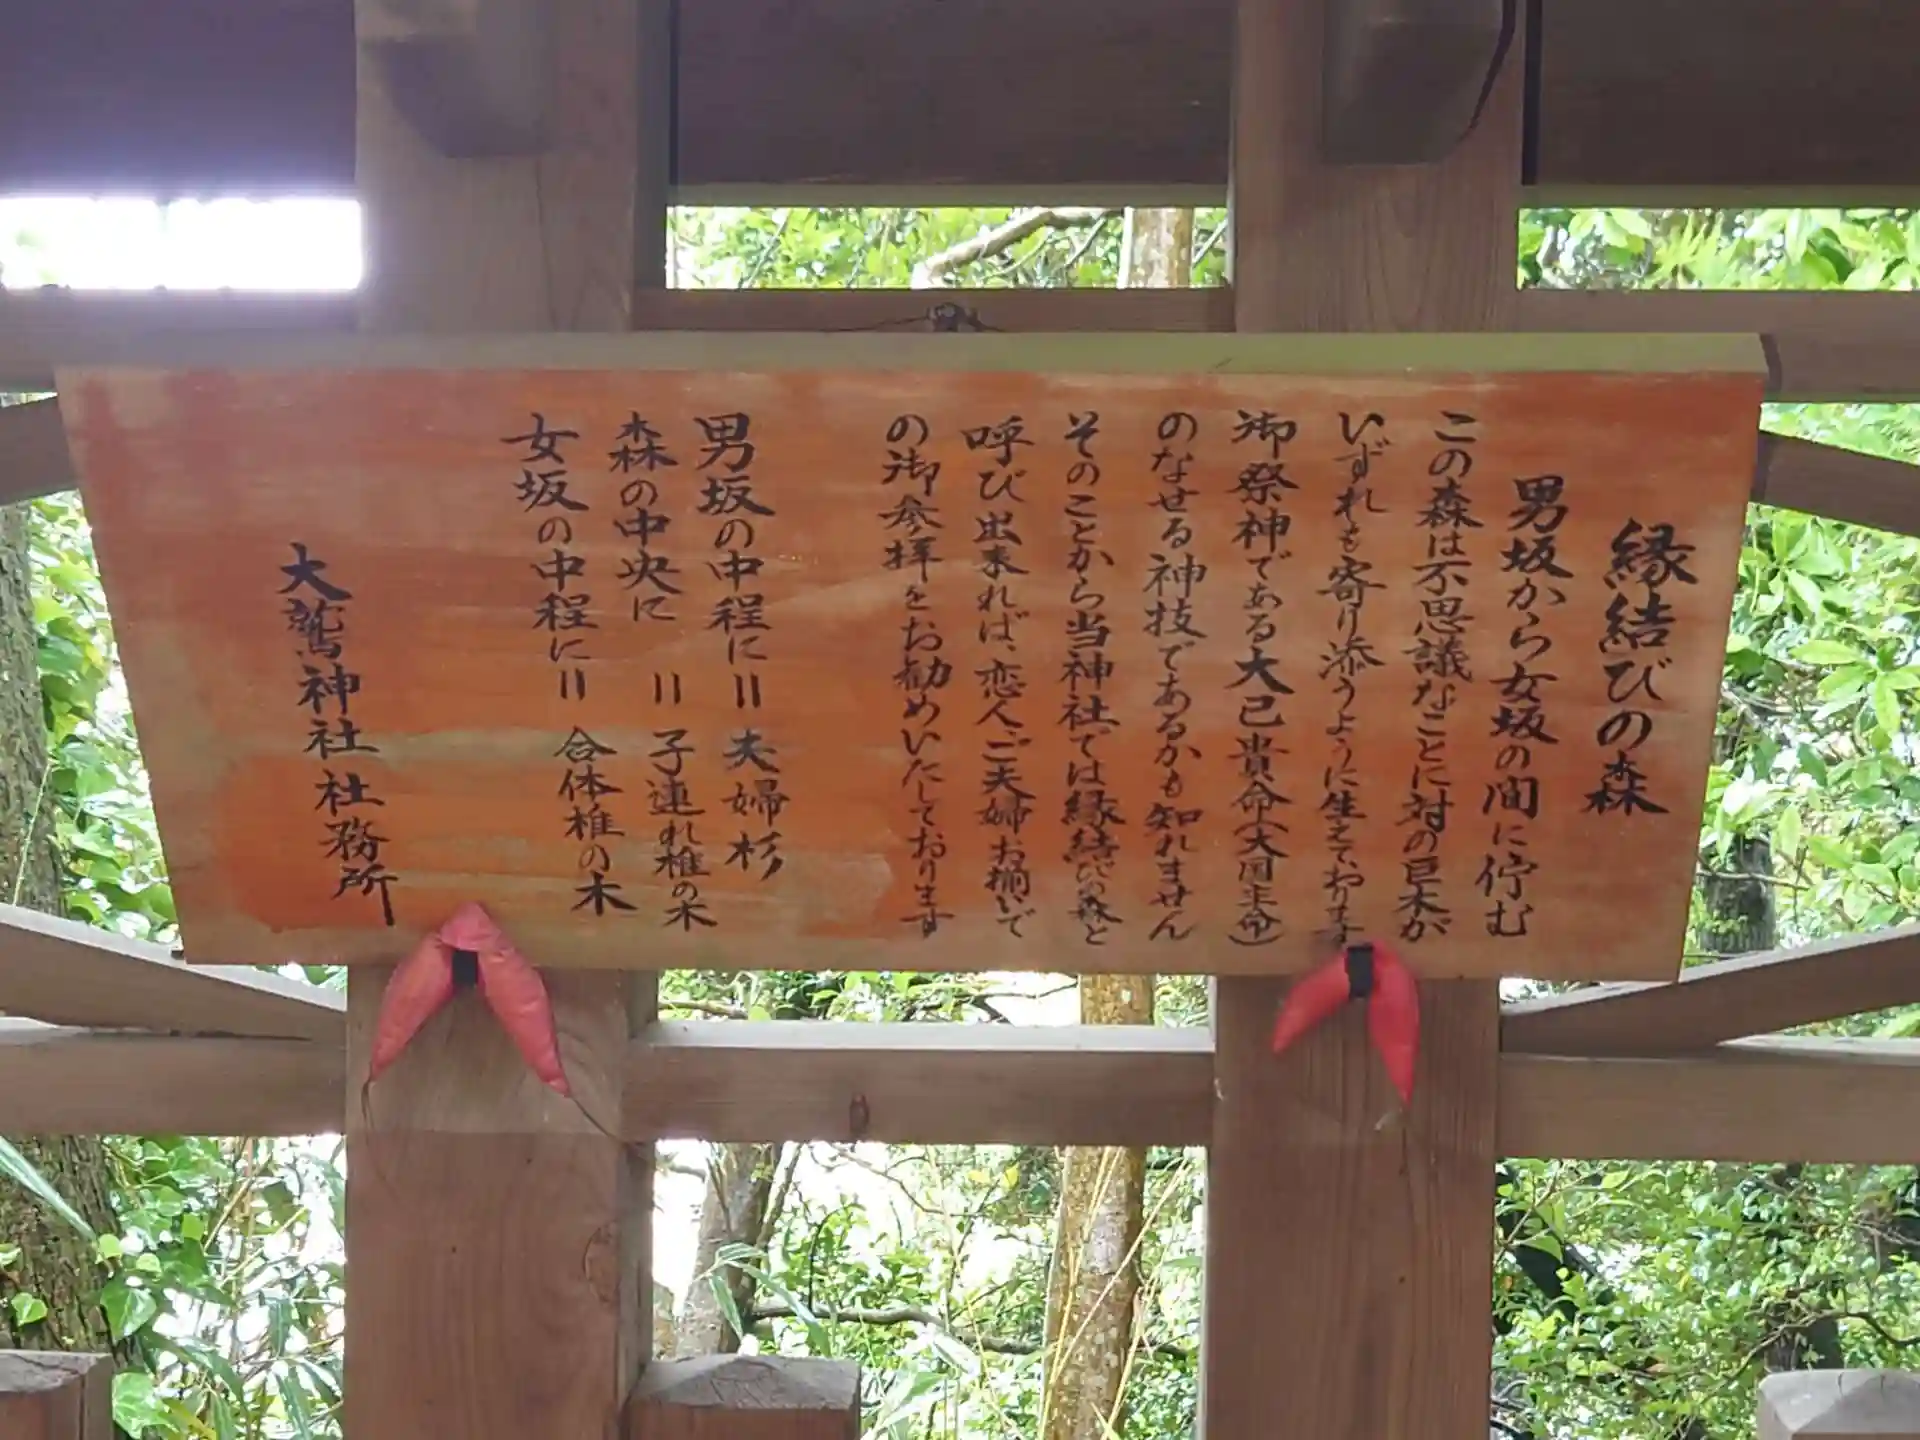 縁結びの森
男坂から女坂の間に佇む
この森は不思議なことに対の巨木が
いずれも寄り添うように生えております
御祭神である大己貴命(大国主命)
のなせる神技であるかも知れません
そのことから当神社では縁結びの森と
呼び出来れば、恋人、ご夫婦お揃いで
の御参拝をお勧めいたしております
男坂の中程に＝夫婦杉
森の中央に＝子連れ椎の木
女坂の中程に＝合体椎の木
大鷲神社社務所